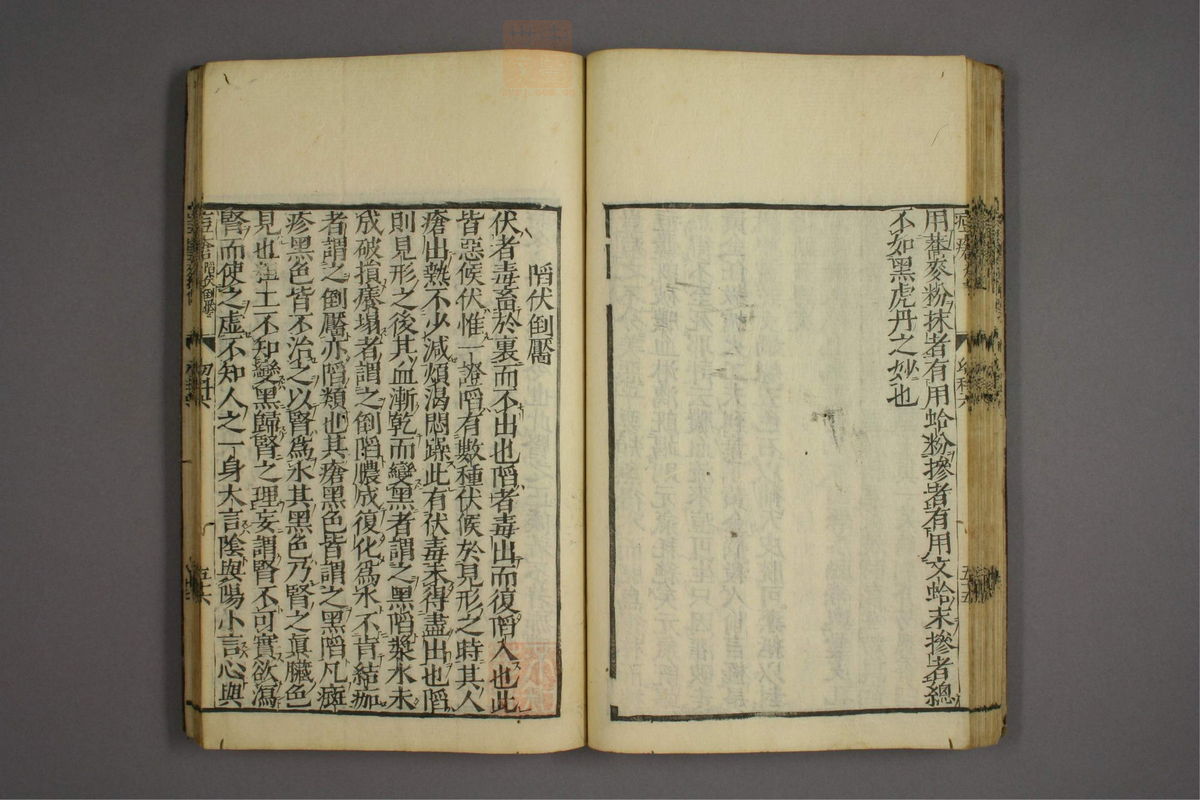 用蕎麥粉抹者有用蛤粉摻者有用文蛤末摻者總
不如黑虎丹之妙也
陷伏倒靨
伏者毒畜於裏而不出也陷者毒出而復陷入也此
皆惡候伏惟一證陷有數種伏候於見形之時其人
瘡出熱不少減煩渴悶躁此有伏毒未得盡出也陷
則見形之後其血漸乾而變黑者謂之黑陷漿水未
成破損癢塌者謂之倒陷膿成復化爲水不肯結痂
者謂之倒靨亦陷類也其瘡黑色皆謂之黑陷凡斑
疹黑色皆不治之以腎爲水其黑色乃腎之眞臟色
見也 土不知變黑歸腎之理妄謂腎不可實欲瀉
腎而使之虛不知人之一身大言陰與陽小言心與
痘瘡陷伏倒靨
五六